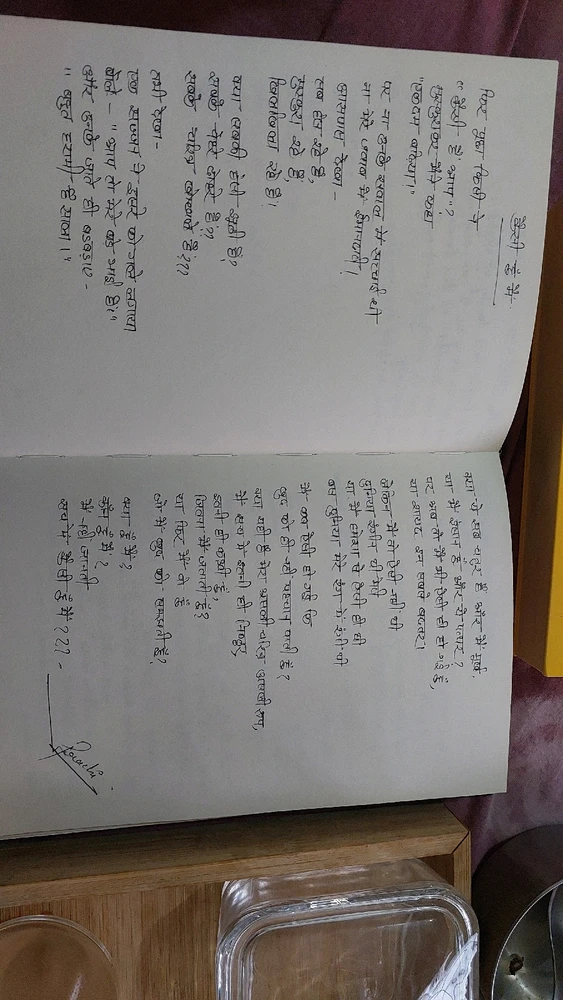 कैसी हूँ मैं
फिर पूछा किसी ने
"कैसी हैं आप"?
मुस्कुराकर मैंने कहा
"एकदम बढ़िया।"
पर ना उनके सवाल में सच्चाई थी
ना मेरे जवाब में ईमानदारी।
आसपास देखा -
सब हँस रहे हैं,
मुस्कुरा रहे हैं,
खिलखिला रहे हैं।
क्या सबकी हँसी झूठी है?
सबके चेहरे हैं??
सबके चरित्र खोखले हैं???
तभी देखा-
एक सज्जन ने दूसरे को गले लगाया
बोले - "आप तो मेरे बड़े भाई हैं।"
और उनके जाते ही बड़बड़ाए -
"बहुत हरामी है साला।"
क्या ये सब चतुर हैं और मैं मूर्ख,
या मैं इंसान हूँ और ये पत्थर?
पर अब तो मैं भी ऐसी ही हो गई हूँ,
या शायद इन सबसे बदतर।
लेकिन मैं तो ऐसी नहीं थी
दुनिया हसीन थी मेरी
या मैं हमेशा से ऐसी ही थी
बस दुनिया मेरे रंग में रंगी थी
मैं कब ऐसी हो गई कि
खुद को ही नहीं पहचान पाती हूँ?
क्या यही है मेरा असली चरित्र, असली रूप,
मैं सच में इतनी ही निष्ठुर,
इतनी ही रूखी हूँ,
जितना मैं जताती हूँ?
या फिर मैं वो हूँ
जो मैं खुद को समझती हूँ?
क्या हूँ मैं?
कौन हूँ मैं?
मैं नहीं जानती
सच में कैसी हूँ मैं???-